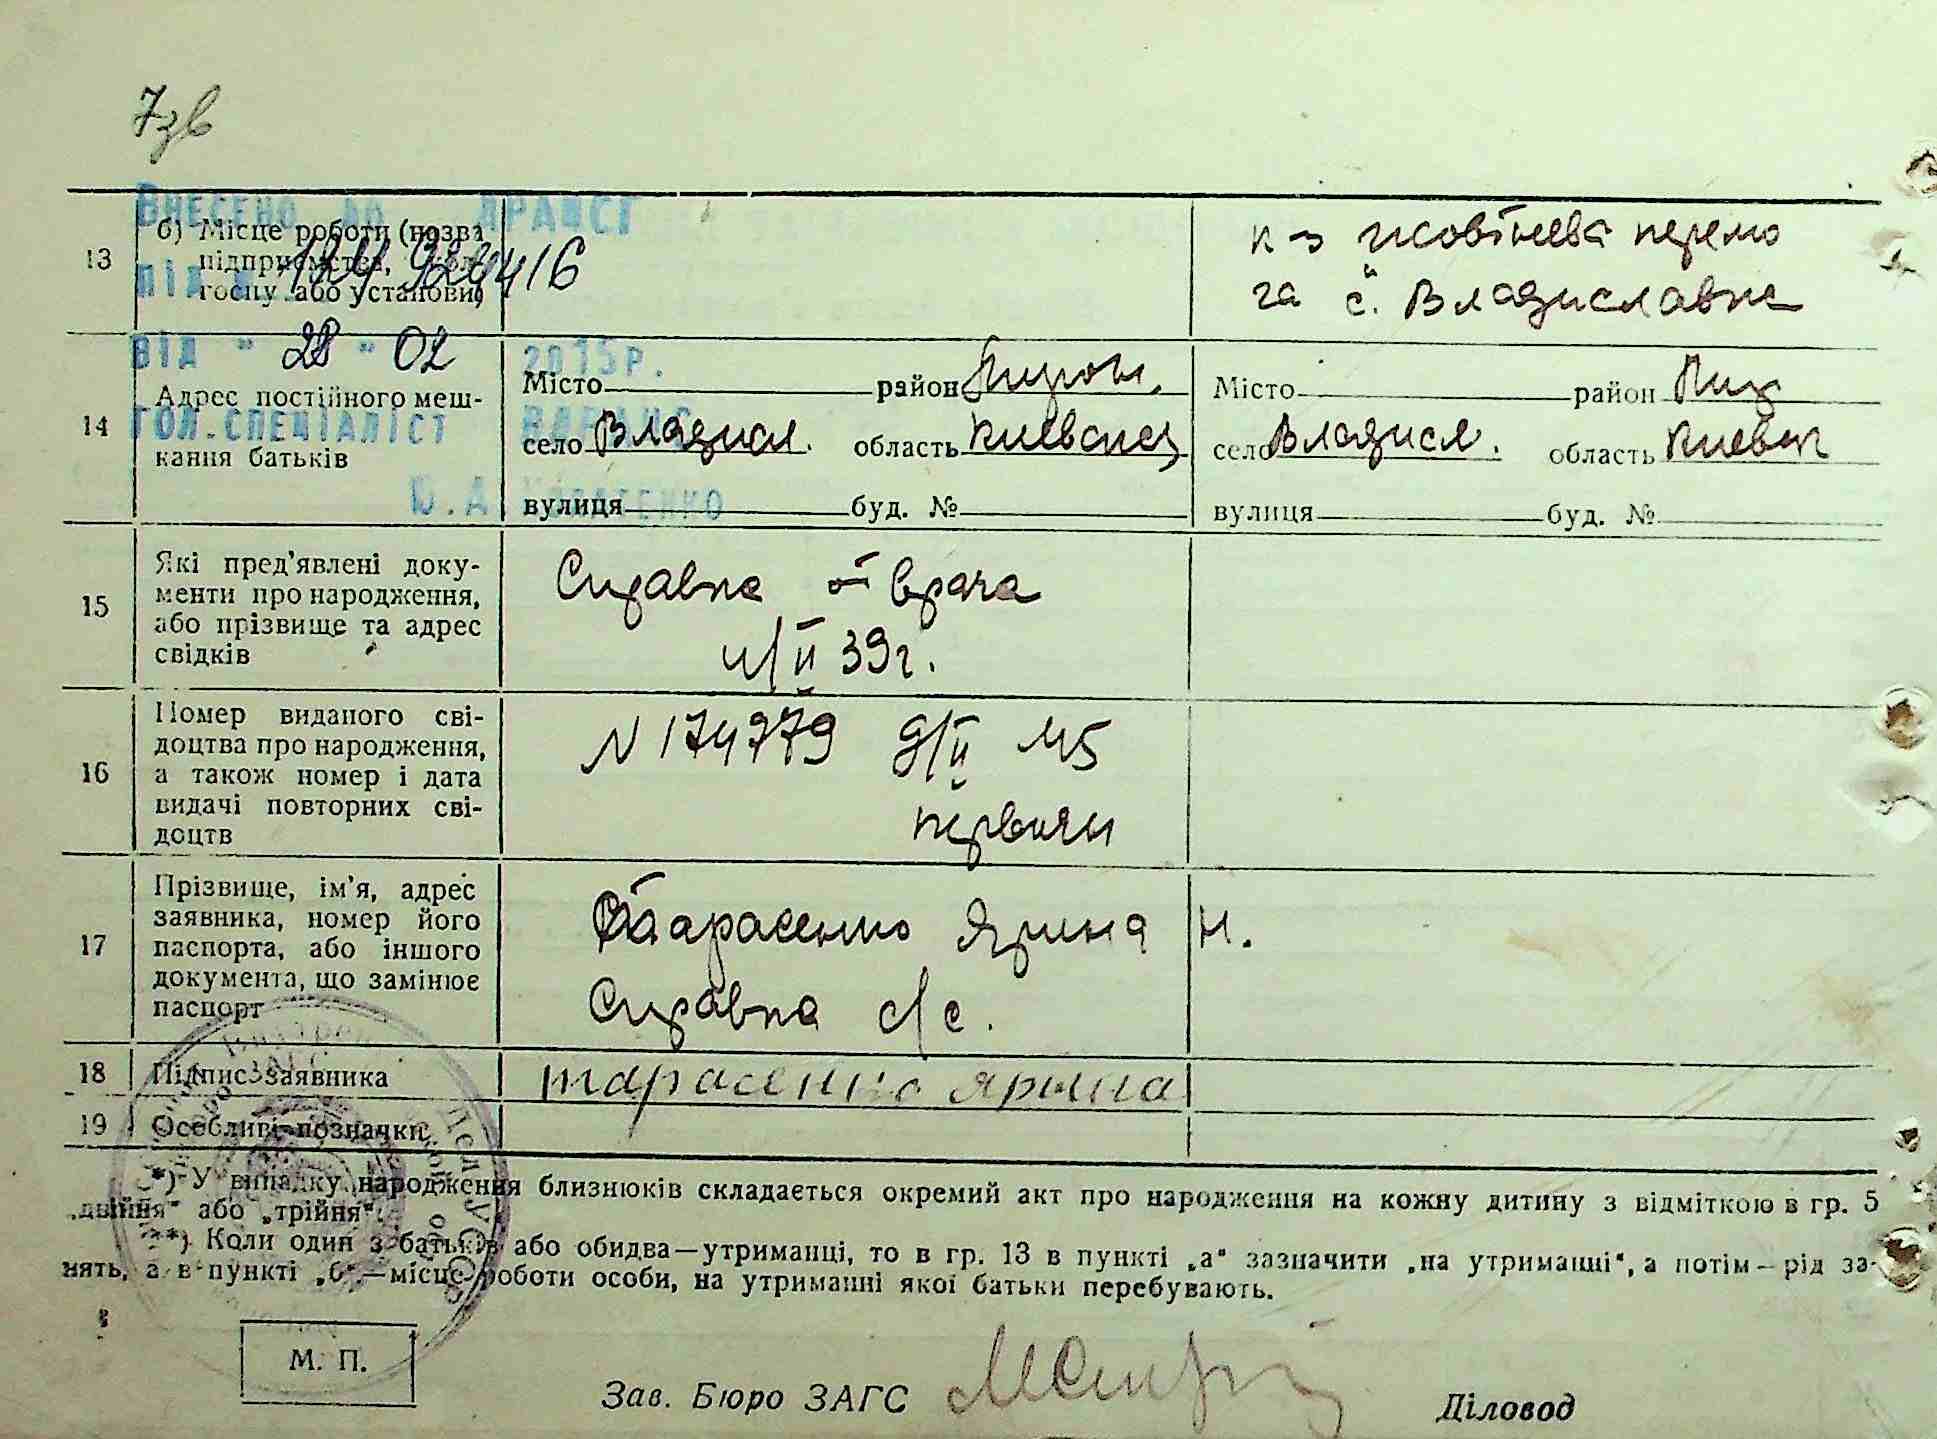 7зв
ВНЕСЕНО ДО ДРАЦСГ
ПІД №
ВІД " 28 " 02 2015р.
ГОЛ.СПЕЦІАЛІСТ ВДРАЦС
Ю.А
13 б) Місце роботи (назва
підприємства,
госпу або установи)
к-з жовтнева перемо
га с. Владиславка
14 Адрес постійного меш-
кання батьків
Місто район
село Владисл. область Киевская
вулиця буд. №
Місто район
село Владисл. область Киевск
вулиця буд. №
15 Які пред'явлені доку-
менти про народження,
або прізвище та адрес
свідків
Справка от врача
II 39г.
16 Номер виданого сві-
доцтва про народження,
а також номер і дата
видачі повторних сві-
доцтв
N 174779 9/II
17 Прізвище, ім'я, адрес
заявника, номер його
паспорта, або іншого
документа, що замінює
паспорт
Тарасенко Ярина Н.
Справка с/с.
18 Підпис заявника
тарасенко ярина
19 Особливі позначки
*) У випадку народження близнюків складається окремий акт про народження на кожну дитину з відміткою в гр. 5
„двійня" або „трійня".
**) Коли один з батьків або обидва—утриманці, то в гр. 13 в пункті „а" зазначити „на утриманні", а потім—рід за-
нять, а в пункті „б"—місце роботи особи, на утриманні якої батьки перебувають.
М. П.
Зав. Бюро ЗАГС
Діловод